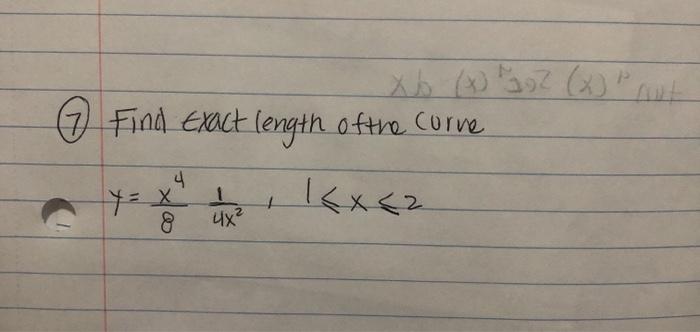 ⑦ Find Exact length of the Curve
y = x⁴/8 1/4x², 1 ≤ x ≤ 2